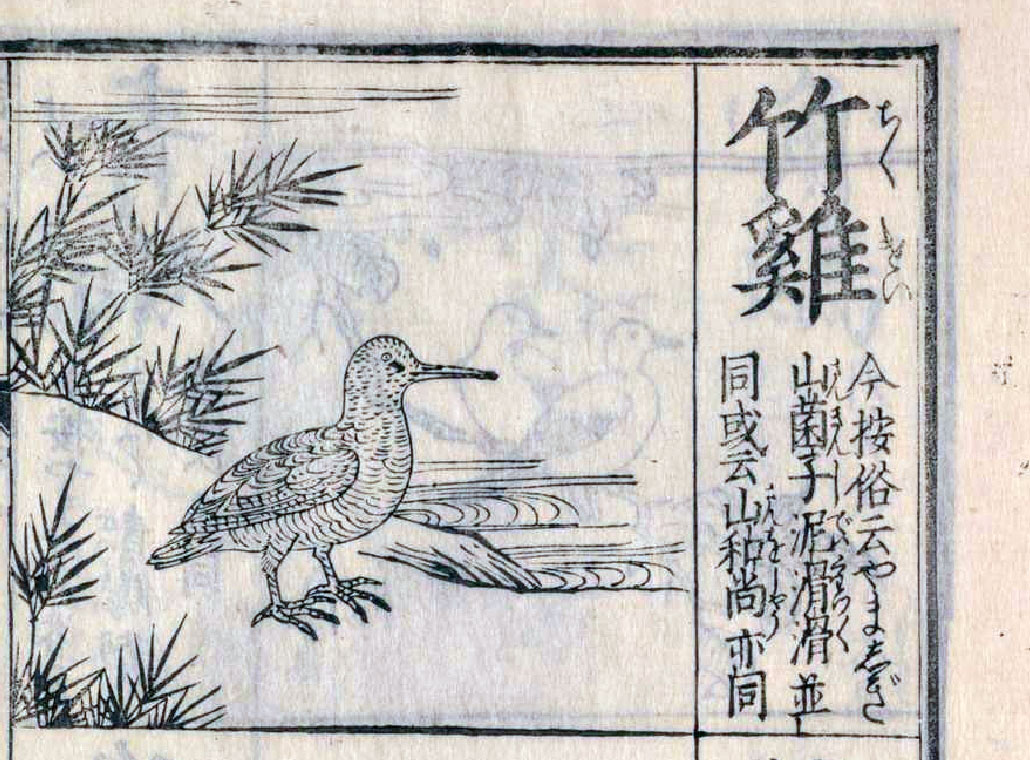 竹雞
ちくけい
今按俗云やましぎ
山菌子泥滑滑並
同或云山和尚亦同
さんきんし
でいこつ〱
さんをしやう